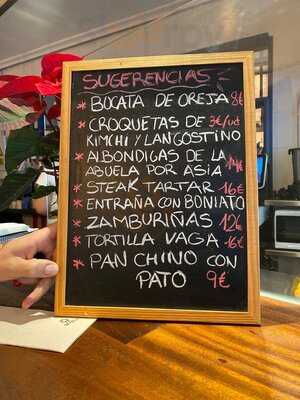 SUGERENCIAS
* BOCATA DE OREJA 8€
* CROQUETAS DE 3€/ud
KIMCHI Y LANGOSTINO
* ALBONDIGAS DE LA
ABUELA POR ASIA 14€
* STEAK TARTAR 16€
* ENTRAÑA CON BONIATO
* ZAMBURIÑAS 12€
* TORTILLA VAGA 16€
* PAN CHINO CON
PATO 9€